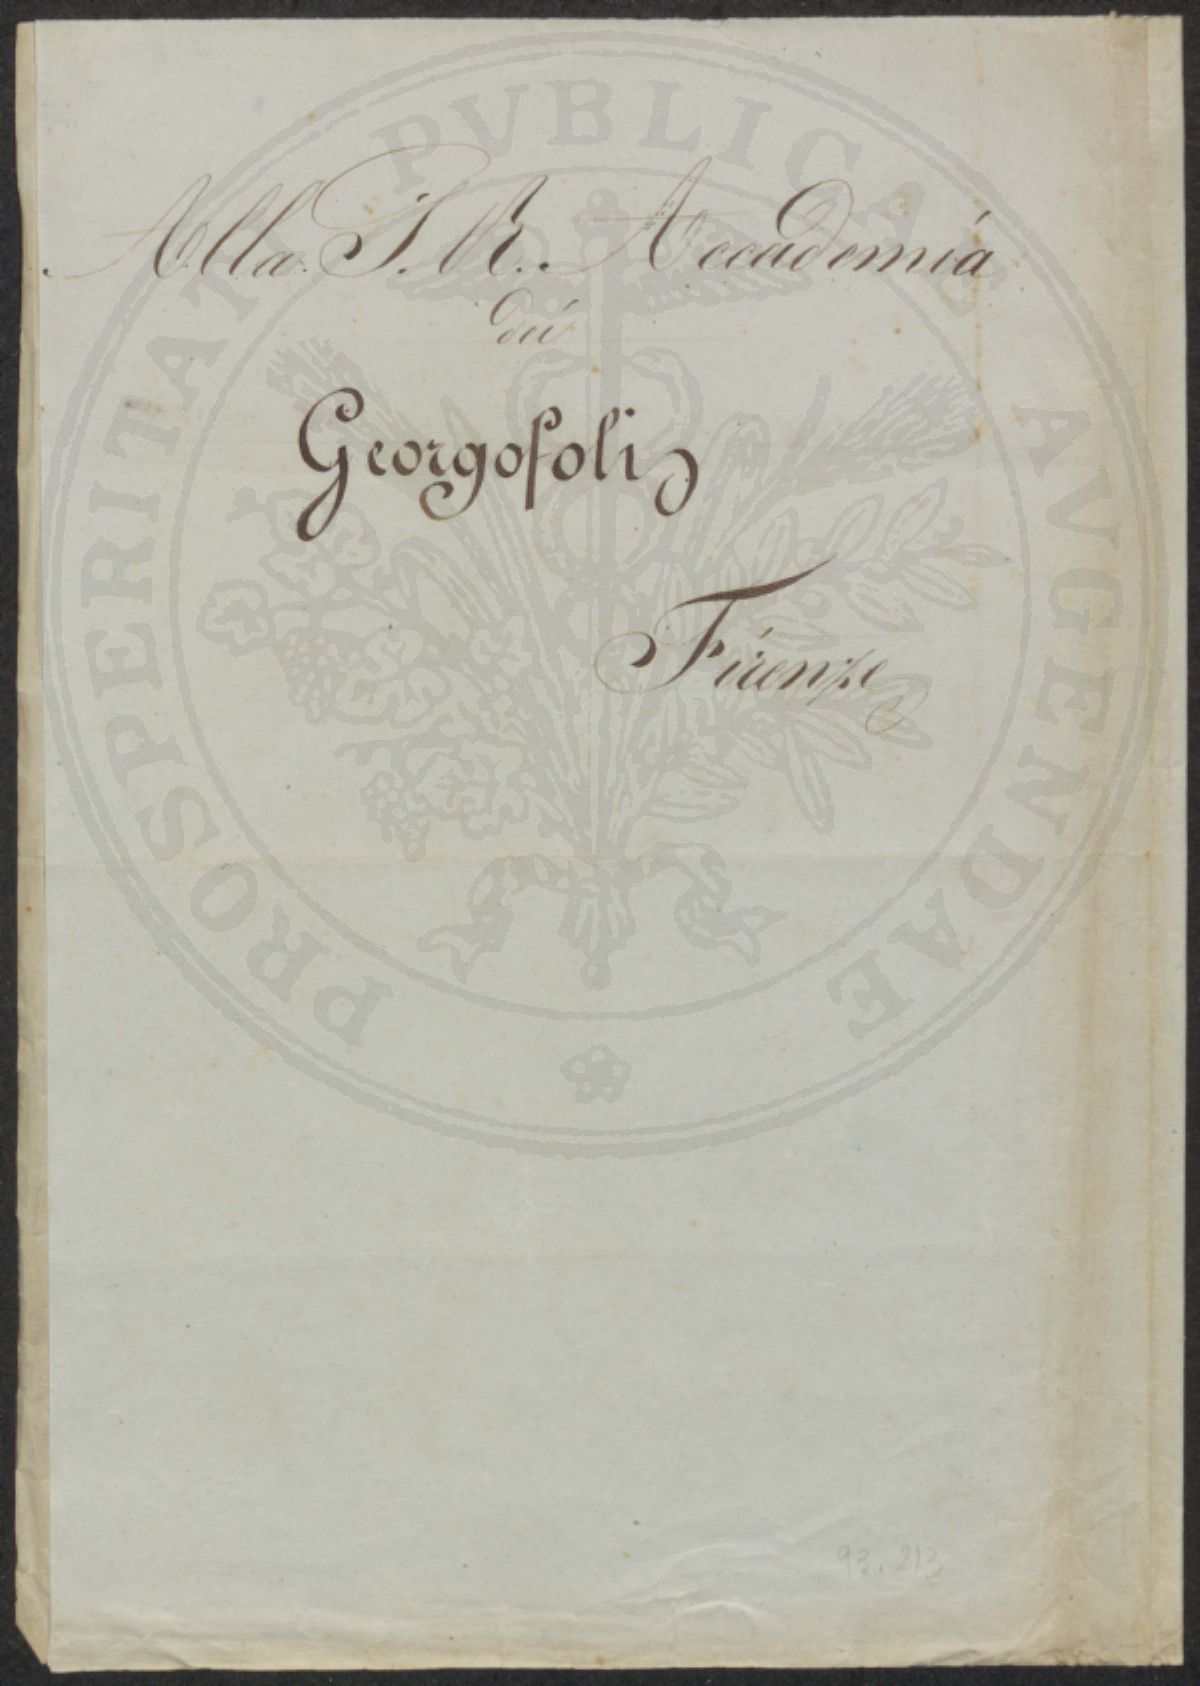 Alla I. R. Accademia
dei
Georgofoli
Firenze
PROSPERITATI PVBLICAE AVGENDAE
93.213